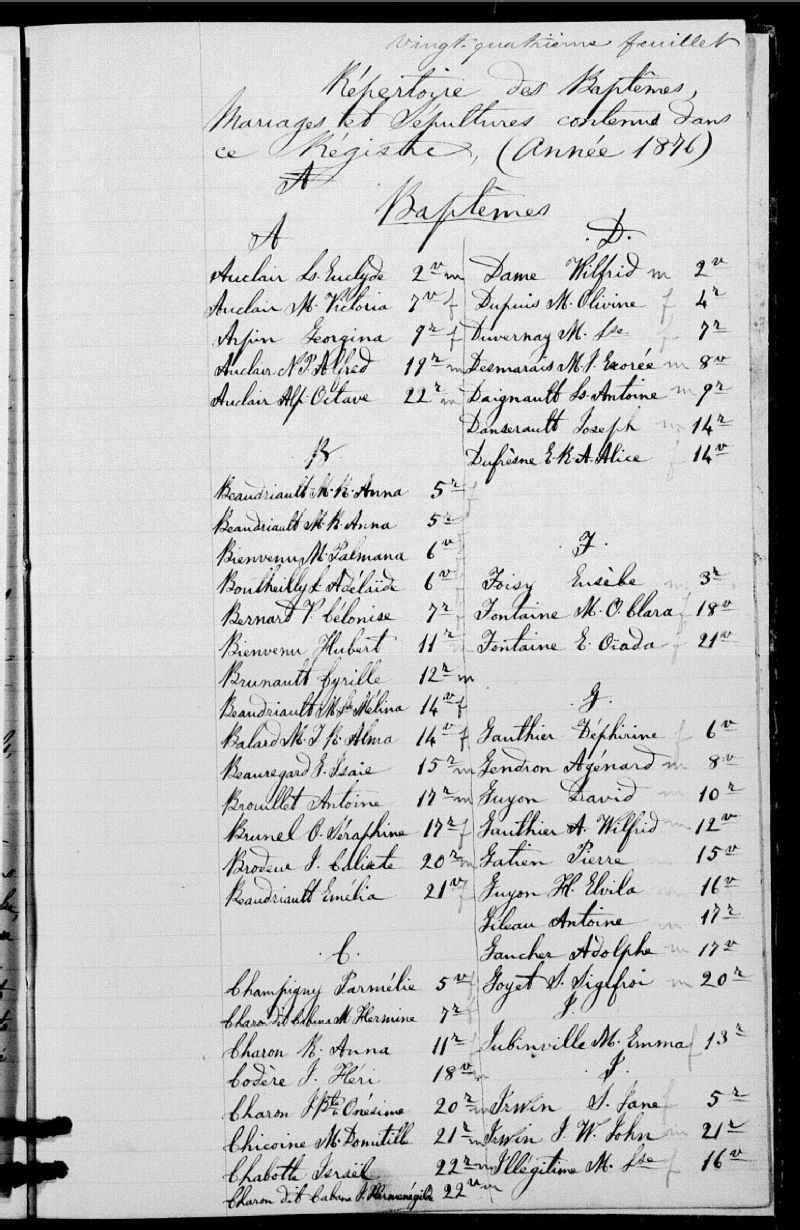 Vingt-quatrième feuillet
Répertoire des Baptêmes,
Mariages et Sépultures contenus dans
ce Régistre, (Année 1876)
A
Baptêmes
A
Auclair Ls. Euclyde 2 v m
Auclair M. Victoria 7 v f
Arpin Georgina 9 r f
Auclair N. P. Alfred 19 r m
Auclair Alp. Octave 22 r m
B
Beaudriault M. R. Anna 5 r f
Beaudriault M. R. Anna 5 r
Bienvenu M. Palmana 6 v f
L. Adélaïde 6 v f
Bernard P. Célonise 7 r f
Bienvenu Hubert 11 r m
Brunault Cyrille 12 r m
Beaudriault M. Ls Melina 14 v f
Balard M. J. R. Alma 14 v f
Beauregard J. Isaie 15 r m
Brouillet Antoine 17 r m
Brunel O. Séraphine 17 r f
Brodeur J. Calixte 20 r m
Beaudriault Emélia 21 v f
C.
Champigny Parmélie 5 v f
Charon dit Cabana M. Hermine 7 r f
Charon R. Anna 11 r f
Codère J. Héri 18 v m
Charon J. Bte Onésime 20 r m
Chicoine M. Domitille 21 r m
Chabotte Israël 22 r m
Charon dit Cabana J. Herménégilde 22 v m
D.
Dame Wilfrid m 2 v
Dupuis M. Olivine f 4 r
Duvernay M. Lse f 7 r
Desmarais M. J. m 8 v
Daignault Ls. Antoine m 9 r
Dansereault Joseph m 14 r
Dufresne E. R. A. Alice f 14 v
F.
Foisy Eusèbe m 3 r
Fontaine M. O. Clara f 18 v
Fontaine E. Oïada f 21 v
G.
Gauthier Zéphirine f 6 v
Gendron Agénard m 8 v
Guyon David m 10 r
Gauthier A. Wilfrid m 12 v
Gatien Pierre m 15 v
Guyon H. Elvila m 16 v
Gileau Antoine m 17 r
Gaucher Adolphe m 17 v
Goyet S. Sigefroi m 20 r
J.
Jubinville M. Emma f 13 r
I.
Irwin S. Jane f 5 r
Irwin J. W. John m 21 r
Illégitime M. Lse f 16 v